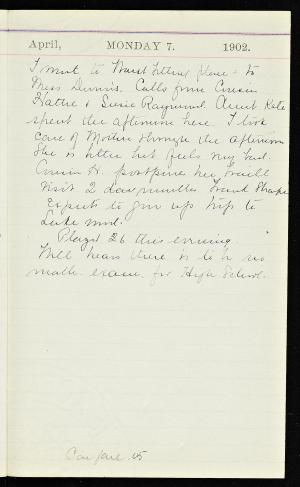 April, MONDAY 7. 1902.
I went to Waist fitting place & to
Miss Dennis. Calls from Cousin
Hattie & Susie Raymond. Aunt Kate
spent the afternoon here. I took
care of Mother through the afternoon
She is better but feels very tired.
Cousin H. postpones her Small
visit 2 days unless Frank Sharpe
expects to give up trip to
Lake
Played 26 this evening.
Will hears there is to be no
math. exam. for High School.
Car fare .05